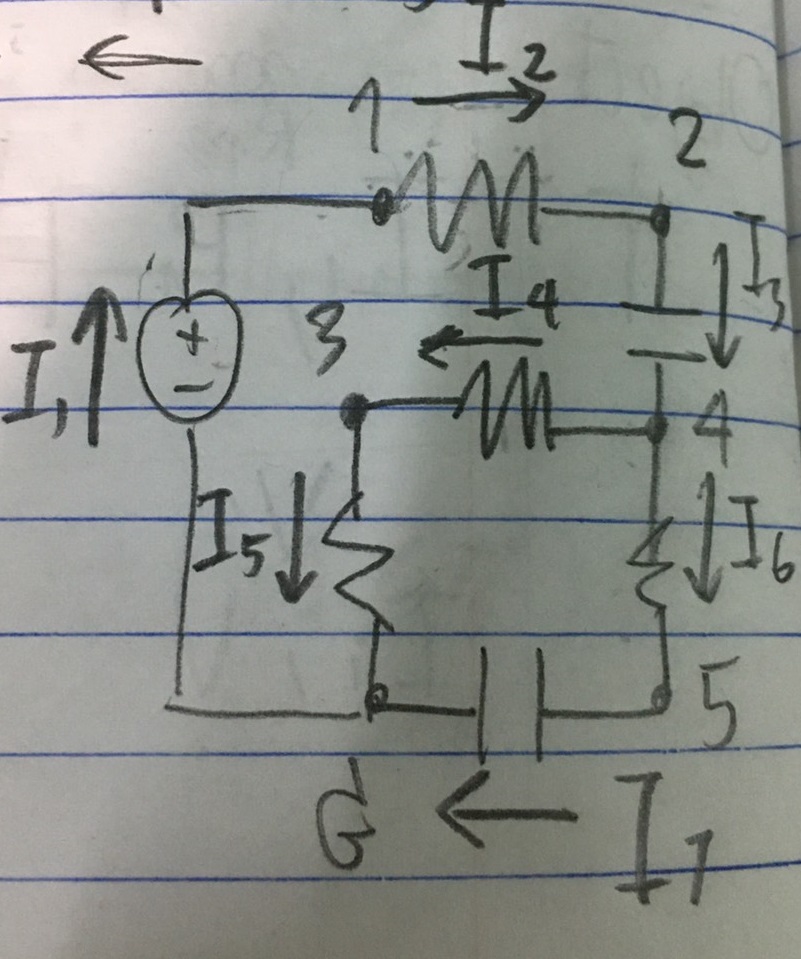 I2
1
2
I3
I4
3
I1
+
-
4
I5
I6
5
G
I7